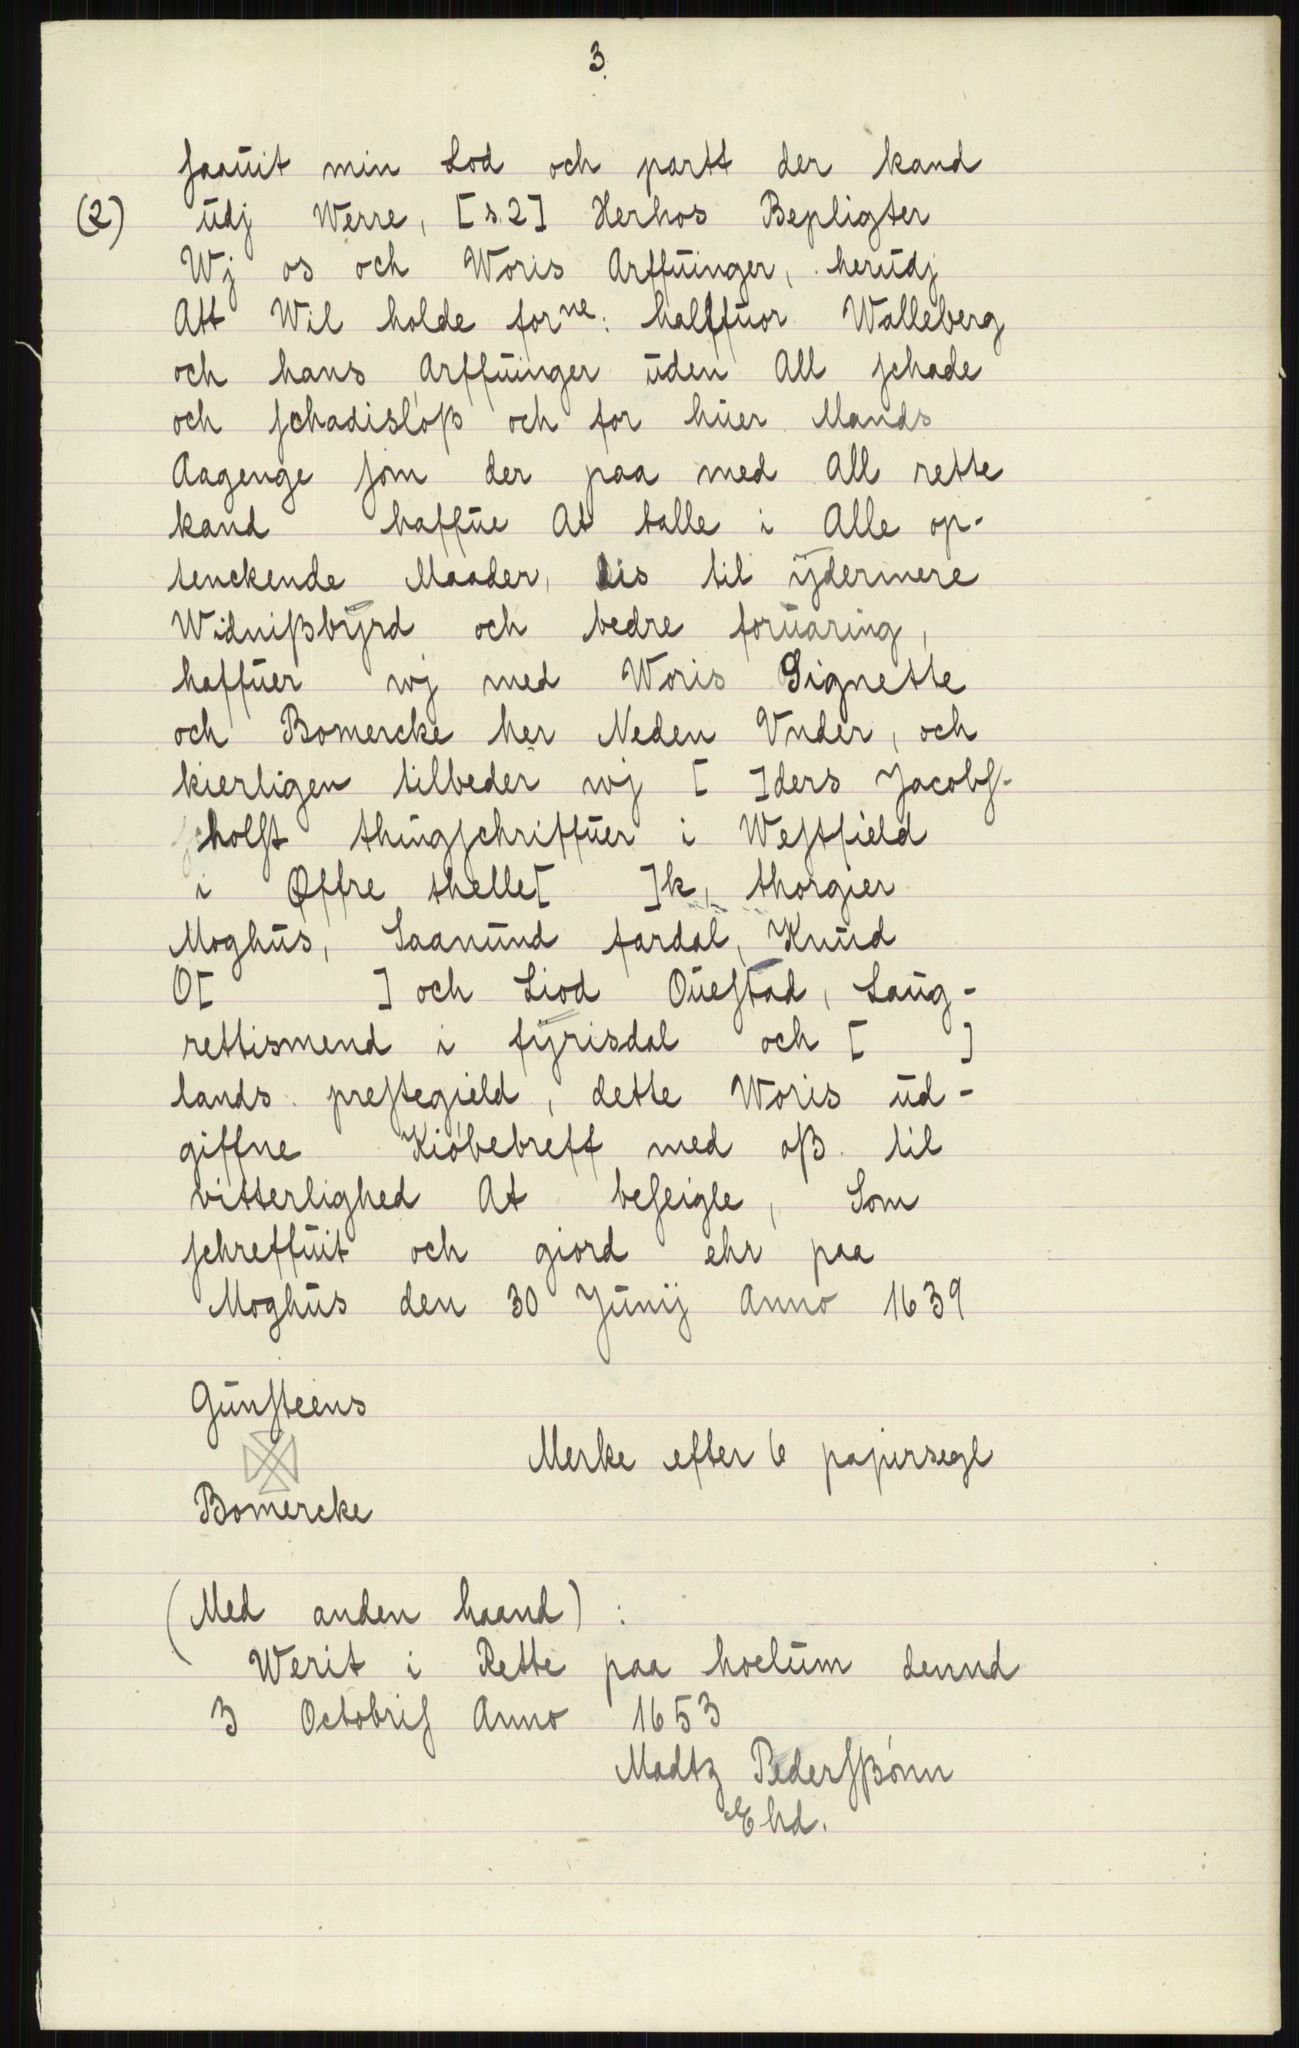 3
saauit min Lod och partt der kand
(2) udj Werre, [s.2] Herhos Bepligter
Wj os och Woris Arffuinger, herudj
Att Wil holde forne: halffuor Walleberg
och hans Arffuinger uden All schade
och schadisløß och for huer Mands
Aagenge som der paa med All rette
kand haffue At talle i Alle op-
tenckende Maader, dis til ÿdermere
Widnißbÿrd och bedre foruaring,
haffuer wj med Woris Signette
och Bomercke her Neden Vnder, och
kierligen tilbeder wj [ ]ders Jacobs-
holst thingschriffuer i Westfield
i Øffre thelle[ ]k, thorgier
Moghus, Saanund fardal, Knud
O[ ] och Liod Ouestad, Laug-
rettismend i fÿrisdal och [ ]
lands prestegield, dette Woris ud-
giffne Kiøbebreff med oß til
vitterlighed At beseigle, Som
schreffuit och giord ehr paa
Moghus den 30 Junij Anno 1639
Gunsteens
Merke efter 6 papirsegl
Bomercke
(Med anden haand) :
Werit i Rette paa hoelum dennd
3 Octobris Anno 1653
Madtz Pedersßønn
Ehd.